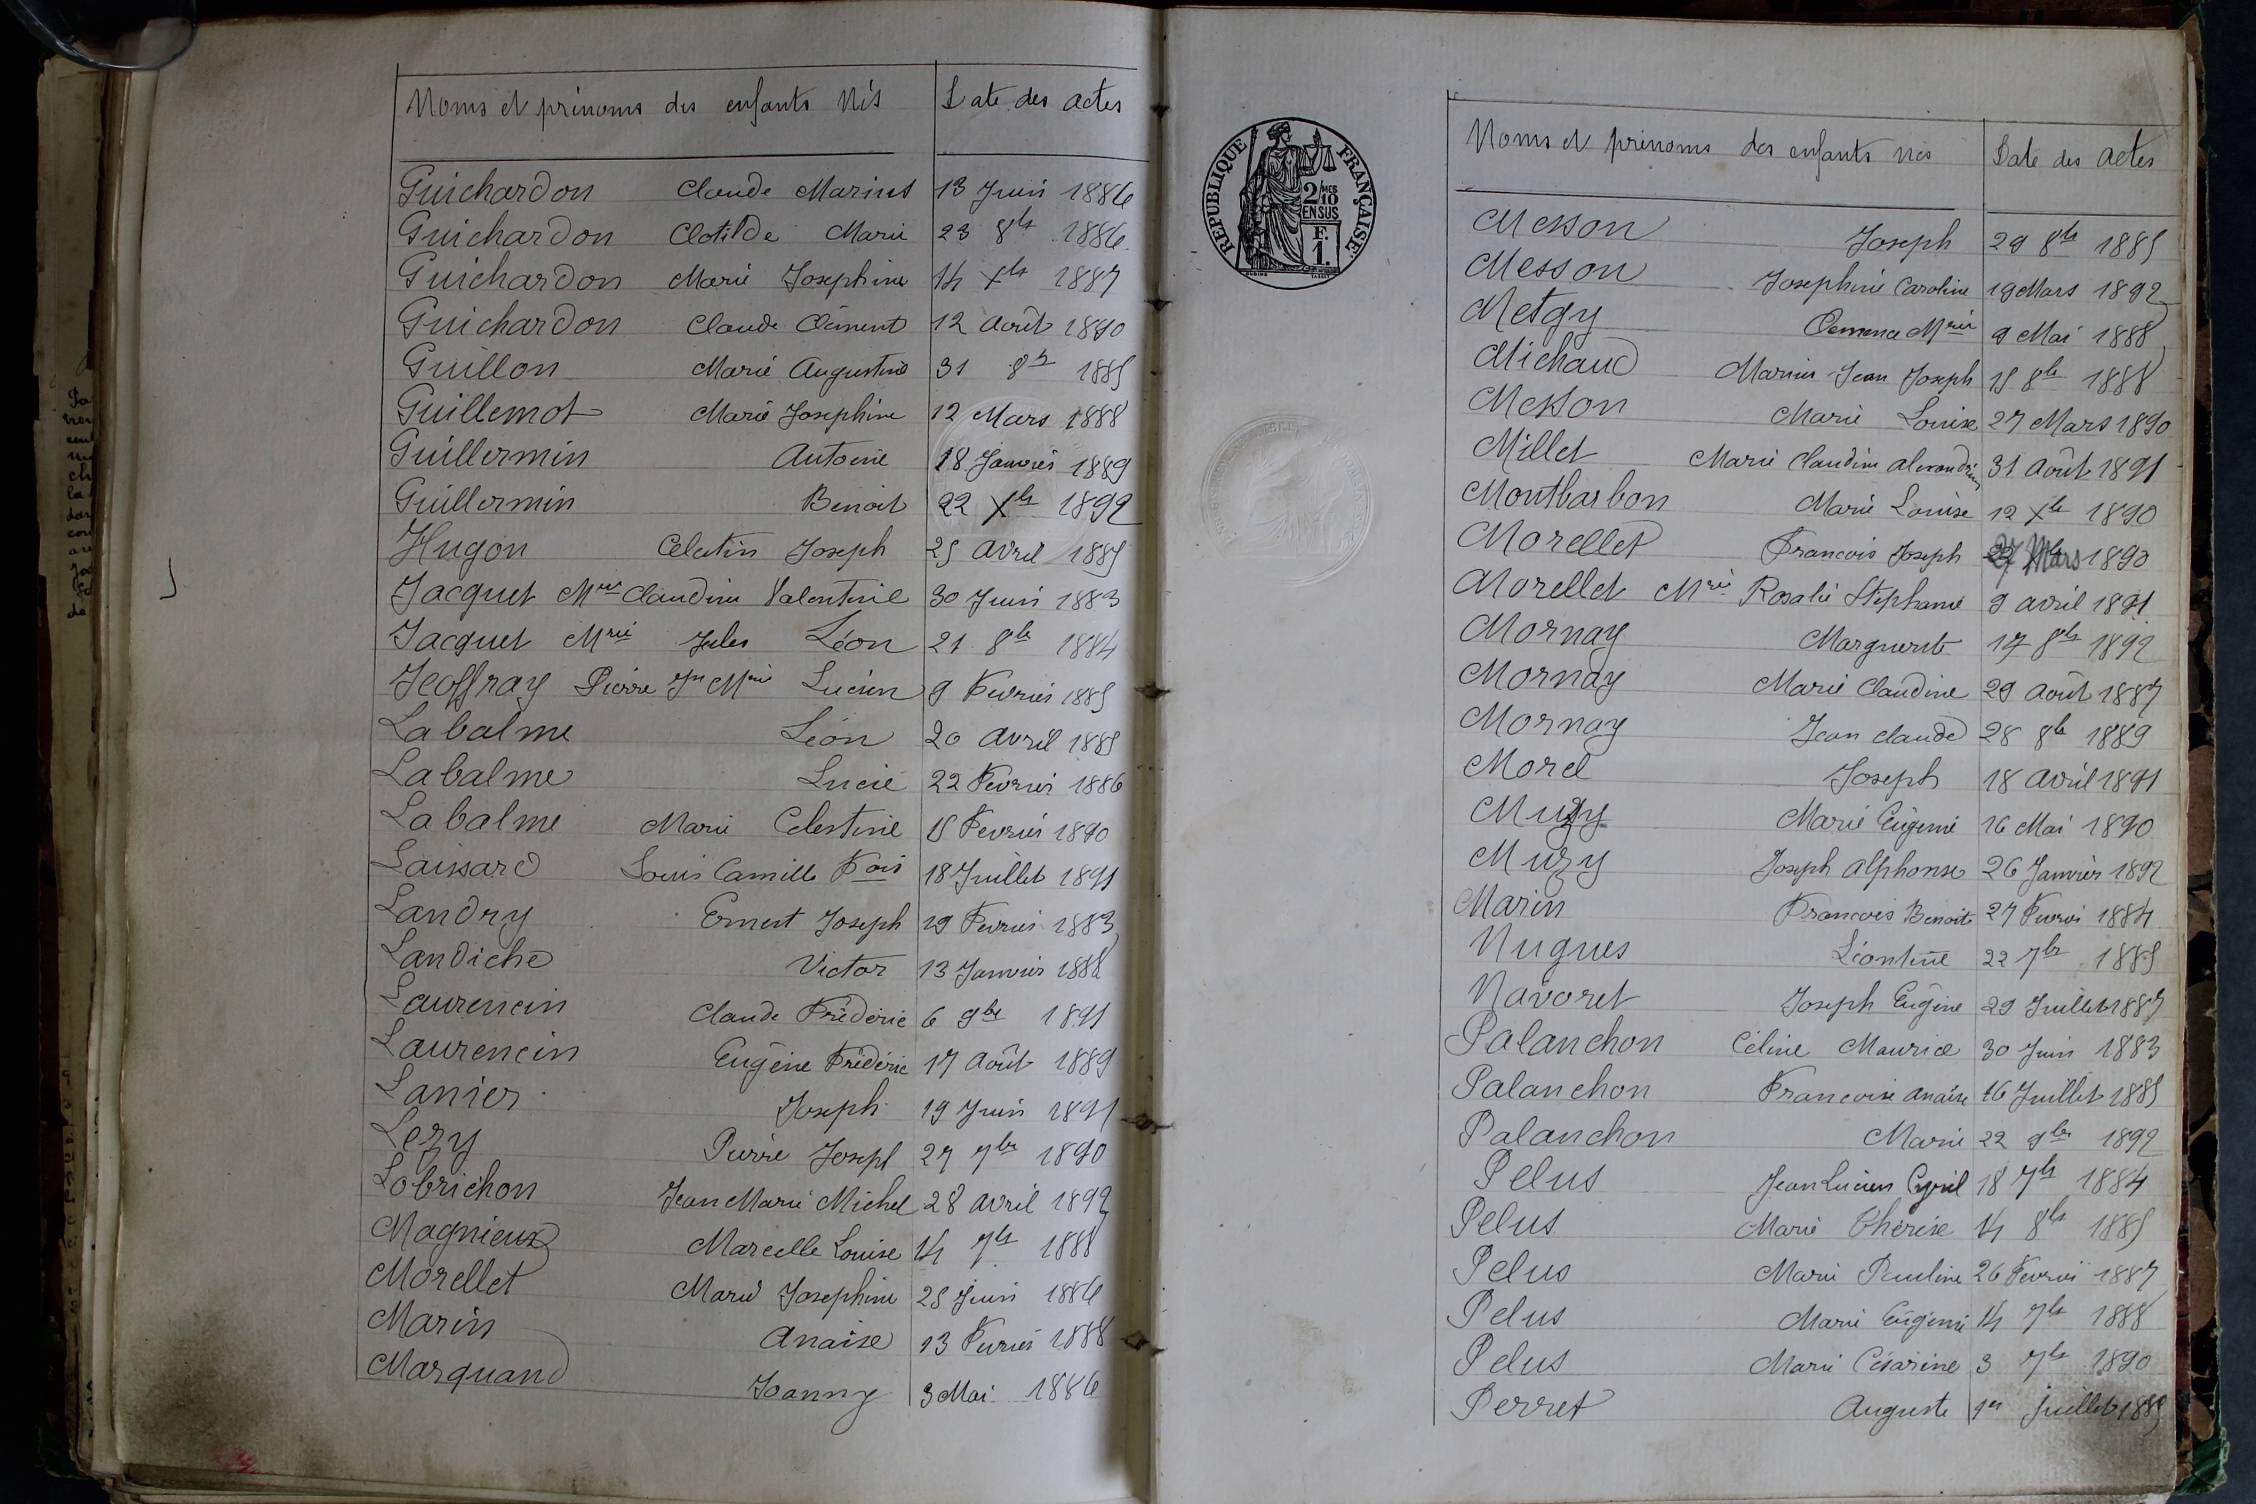 Noms et prénoms des enfants Nés Date des actes
Guichardon Claude Marius 13 Juin 1886
Guichardon Clotilde Marie 23 8bre 1886
Guichardon Marie Josephine 14 Xbre 1887
Guichardon Claude Clément 12 Août 1890
Guillon Marie Augustine 31 8bre 1885
Guillemot Marie Josephine 12 Mars 1888
Guillermin Antoine 18 Janvier 1889
Guillermin Benoit 22 Xbre 1892
Hugon Celestin Joseph 25 Avril 1885
Jacquet Mrie Claudine Valentine 30 Juin 1883
Jacquet Mrie Jules Léon 21 8bre 1884
Jeoffray Pierre Jn Mrie Lucien 9 Fevrier 1885
Labalme Léon 20 Avril 1885
Labalme Lucie 22 Fevrier 1886
Labalme Marie Celestine 15 Fevrier 1890
Laissard Louis Camille Fois 18 Juillet 1891
Landry Ernest Joseph 19 Fevrier 1883
Landiche Victor 13 Janvier 1888
Laurencin Claude Frédéric 6 9bre 1891
Laurencin Eugène Frédéric 17 Août 1889
Lanier Joseph 19 Juin 1891
Lezy Pierre Joseph 27 7bre 1890
Lobrichon Jean Marie Michel 28 Avril 1892
Magnieux Marcelle Louise 14 7bre 1888
Morellet Marie Josephine 25 Juin 1886
Marin Anaïse 13 Fevrier 1888
Marquand Joanny 3 Mai 1886
RÉPUBLIQUE FRANÇAISE
2/10 MES
EN SUS
F.
1.
Noms et prénoms des enfants nés Date des actes
Messon Joseph 29 8bre 1885
Messon Josephine Caroline 19 Mars 1892
Metgy Clemence Mrie 9 Mai 1888
Michaud Marius Jean Joseph 15 8bre 1888
Messon Marie Louise 27 Mars 1890
Millet Marie Claudine Alexandrine 31 Août 1891
Montbarbon Marie Louise 12 Xbre 1890
Morellet Francois Joseph 27 Mars 1890
Morellet Mrie Rosalie Stéphanie 9 avril 1891
Mornay Marguerite 17 8bre 1892
Mornay Marie Claudine 29 Août 1887
Mornay Jean Claude 28 8bre 1889
Morel Joseph 18 Avril 1891
Muzy Marie Eugénie 16 Mai 1890
Muzy Joseph Alphonse 26 Janvier 1892
Marin Francois Benoit 27 Fevrier 1884
Nugues Léontine 22 7bre 1885
Navoret Joseph Eugène 29 Juillet 1887
Palanchon Céline Maurice 30 Juin 1883
Palanchon Francoise Anaïse 16 Juillet 1885
Palanchon Marie 22 9bre 1892
Pelus Jean Lucien Cyril 18 7bre 1884
Pelus Marie Thérèse 14 8bre 1885
Pelus Marie Pauline 26 Fevrier 1887
Pelus Marie Eugénie 14 7bre 1888
Pelus Marie Césarine 3 7bre 1890
Perret Auguste 1er Juillet